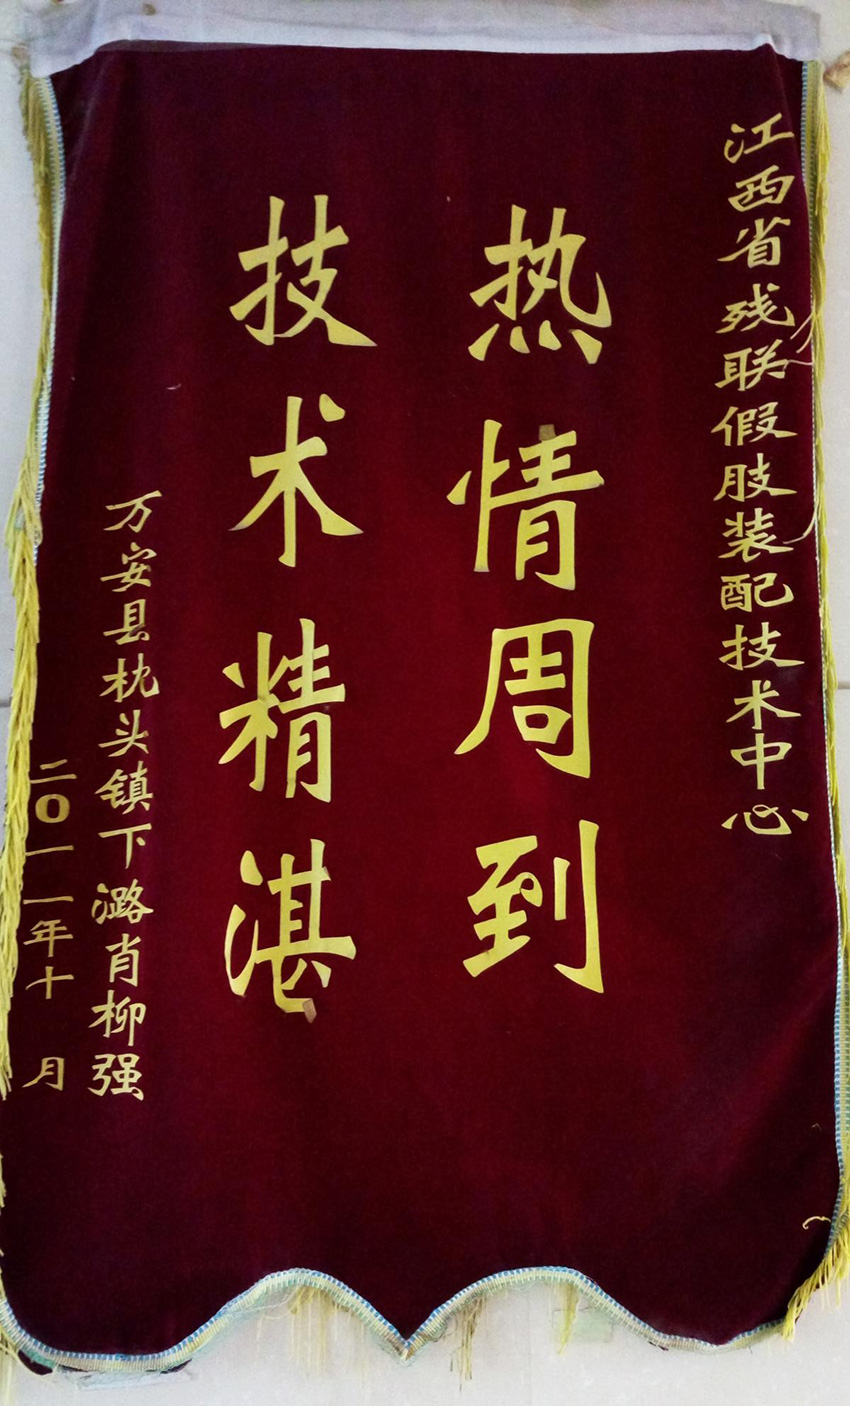 江西省残联假肢装配技术中心
热情周到
技术精湛
万安县枕头镇下潞肖柳强
二〇一一年十 月